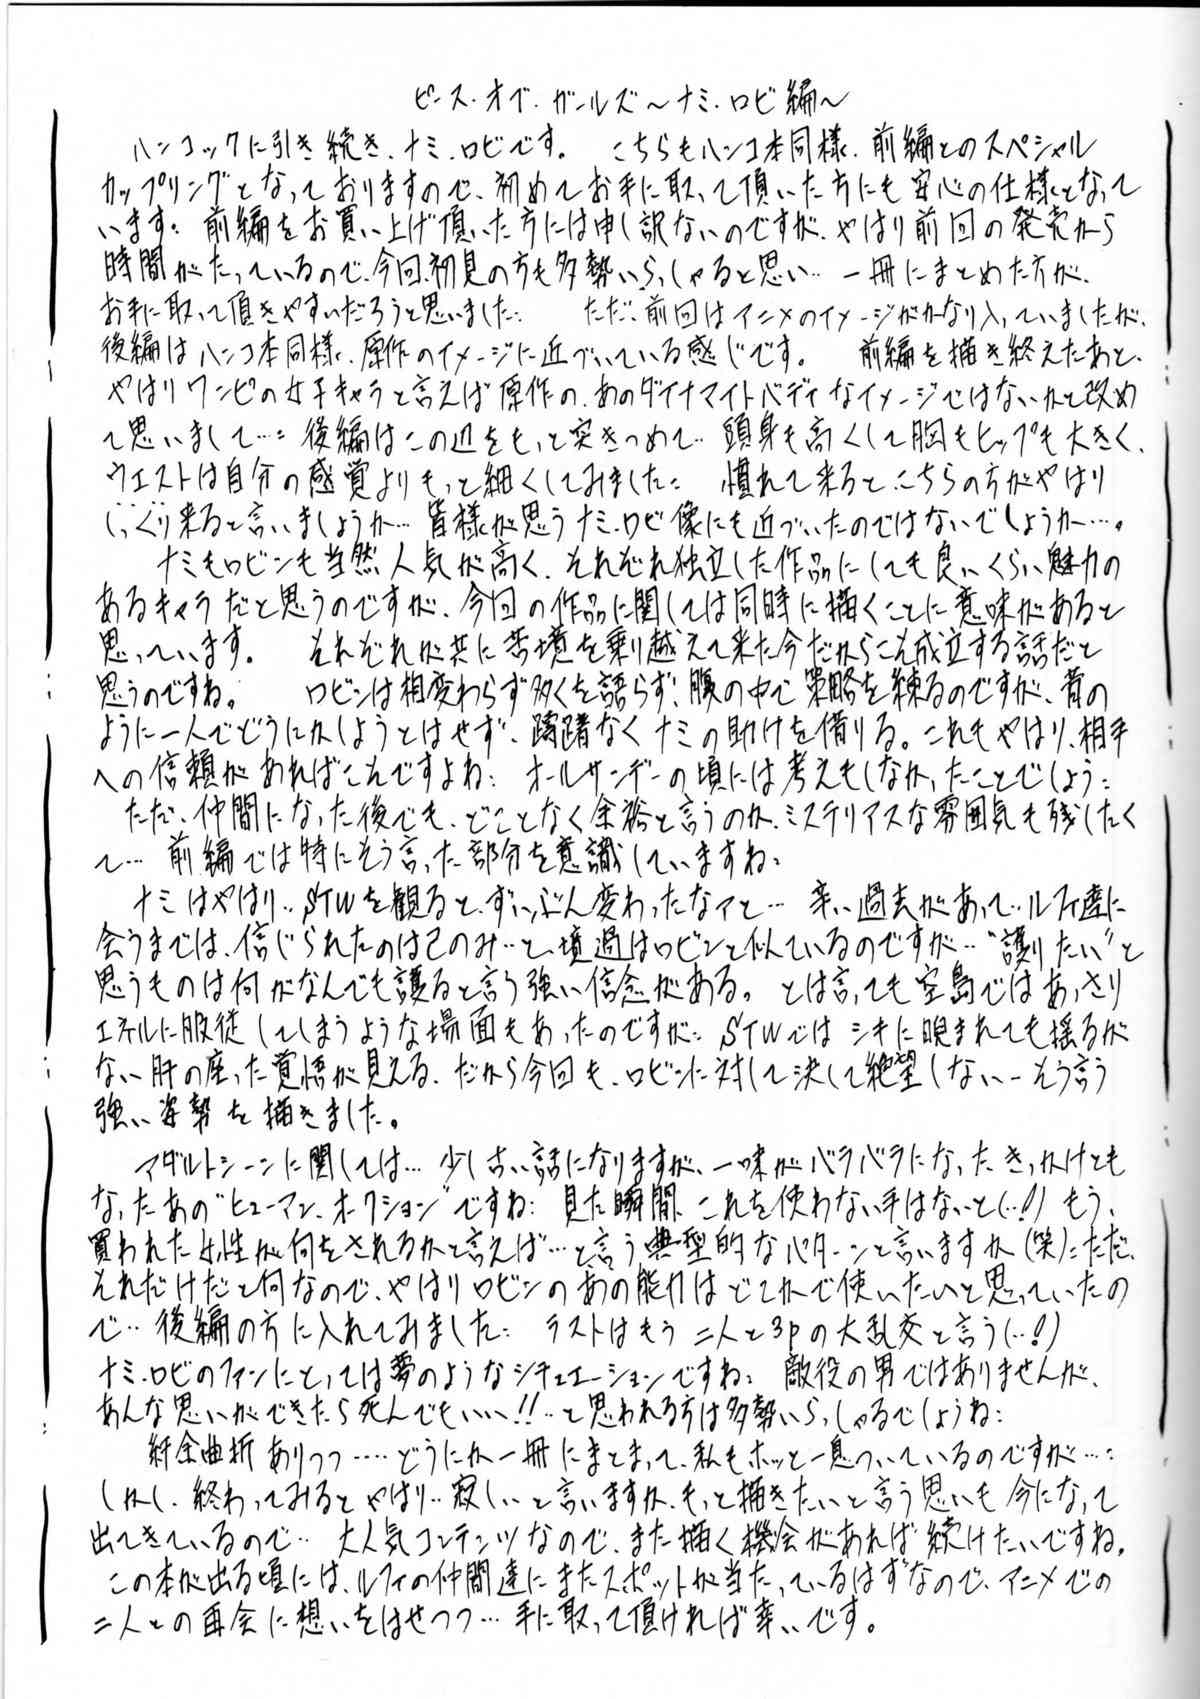 ピース・オブ・ガールズ～ナミ・ロビ編～
ハンコックに引き続き、ナミ・ロビです。 こちらもハンコ本同様、前編とのスペシャル
カップリングとなっておりますので、初めてお手に取って頂いた方にも安心の仕様となって
います: 前編をお買い上げ頂いた方には申し訳ないのですが、やはり前回の発売から
時間がたっているので、今回、初見の方も多勢いらっしゃると思い… 一冊にまとめた方が、
お手に取って頂きやすいだろうと思いました: ただ、前回はアニメのイメージがかなり入っていましたが、
後編はハンコ本同様、原作のイメージに近づいている感じです。 前編を描き終えたあと、
やはりワンピの女子キャラと言えば原作の、あのダイナマイトバディなイメージではないかと改め
て思いまして…: 後編はこの辺をもっと突きつめて… 頭身も高くして胸もヒップも大きく、
ウエストは自分の感覚よりもっと細くしてみました: 慣れて来ると、こちらの方がやはり
しっくり来ると言いましょうか… 皆様が思うナミ・ロビ像にも近づいたのではないでしょうか…。
ナミもロビンも当然人気が高く、それぞれ独立した作品にしても良いくらい魅力の
あるキャラだと思うのですが、今回の作品に関しては同時に描くことに意味があると
思っています。 それぞれが共に苦境を乗り越えて来た今だからこそ成立する話だと
思うのですね。 ロビンは相変わらず多くを語らず、腹の中で策略を練るのですが、昔の
ように一人でどうにかしようとはせず、躊躇なくナミの助けを借りる。これもやはり、相手
への信頼があればこそですよね: オールサンデーの頃には考えもしなかったことでしょう:
ただ、仲間になった後でも、どことなく余裕と言うのか、ミステリアスな雰囲気も残したく
て… 前編では特にそう言った部分を意識していますね:
ナミはやはり‥STWを観ると、ずいぶん変わったなァと… 辛い過去があって‥ルフィ達に
会うまでは、信じられたのは己のみ‥と、境過はロビンと似ているのですが‥“護りたい”と
思うものは何がなんでも護ると言う強い信念がある。とは言っても空島ではあっさり
エネルに服従してしまうような場面もあったのですが: STWではシキに睨まれても揺るが
ない肝の座った覚悟が見える、だから今回も、ロビンに対して決して絶望しない－そう言う
強い姿勢を描きました。
アダルトシーンに関しては… 少し古い話になりますが、一味がバラバラになったきっかけとも
なったあの“ヒューマン・オークション”ですね: 見た瞬間、これを使わない手はないと(‥!) もう、
買われた女性が何をされるかと言えば…と言う典型的なパターンと言いますか(笑): ただ、
それだけだと何なので、やはりロビンのあの能力はどこかで使いたいと思っていたの
で‥ 後編の方に入れてみました: ラストはもう 二人と3Pの大乱交と言う(‥!)
ナミ・ロビのファンにとっては夢のようなシチュエーションですね: 敵役の男ではありませんが、
あんな思いができたら死んでもいい!!‥と思われる方は多勢いらっしゃるでしょうね:
紆余曲折ありつつ‥‥どうにか一冊にまとまって、私もホッと一息ついているのですが…:
しかし、終わってみるとやはり‥寂しいと言いますか、もっと描きたいと言う思いも今になって
出てきているので‥ 大人気コンテンツなので、また描く機会があれば続けたいですね。
この本が出る頃には、ルフィの仲間達にまたスポットが当たっているはずなので、アニメでの
二人との再会に想いをはせつつ… 手に取って頂ければ幸いです。